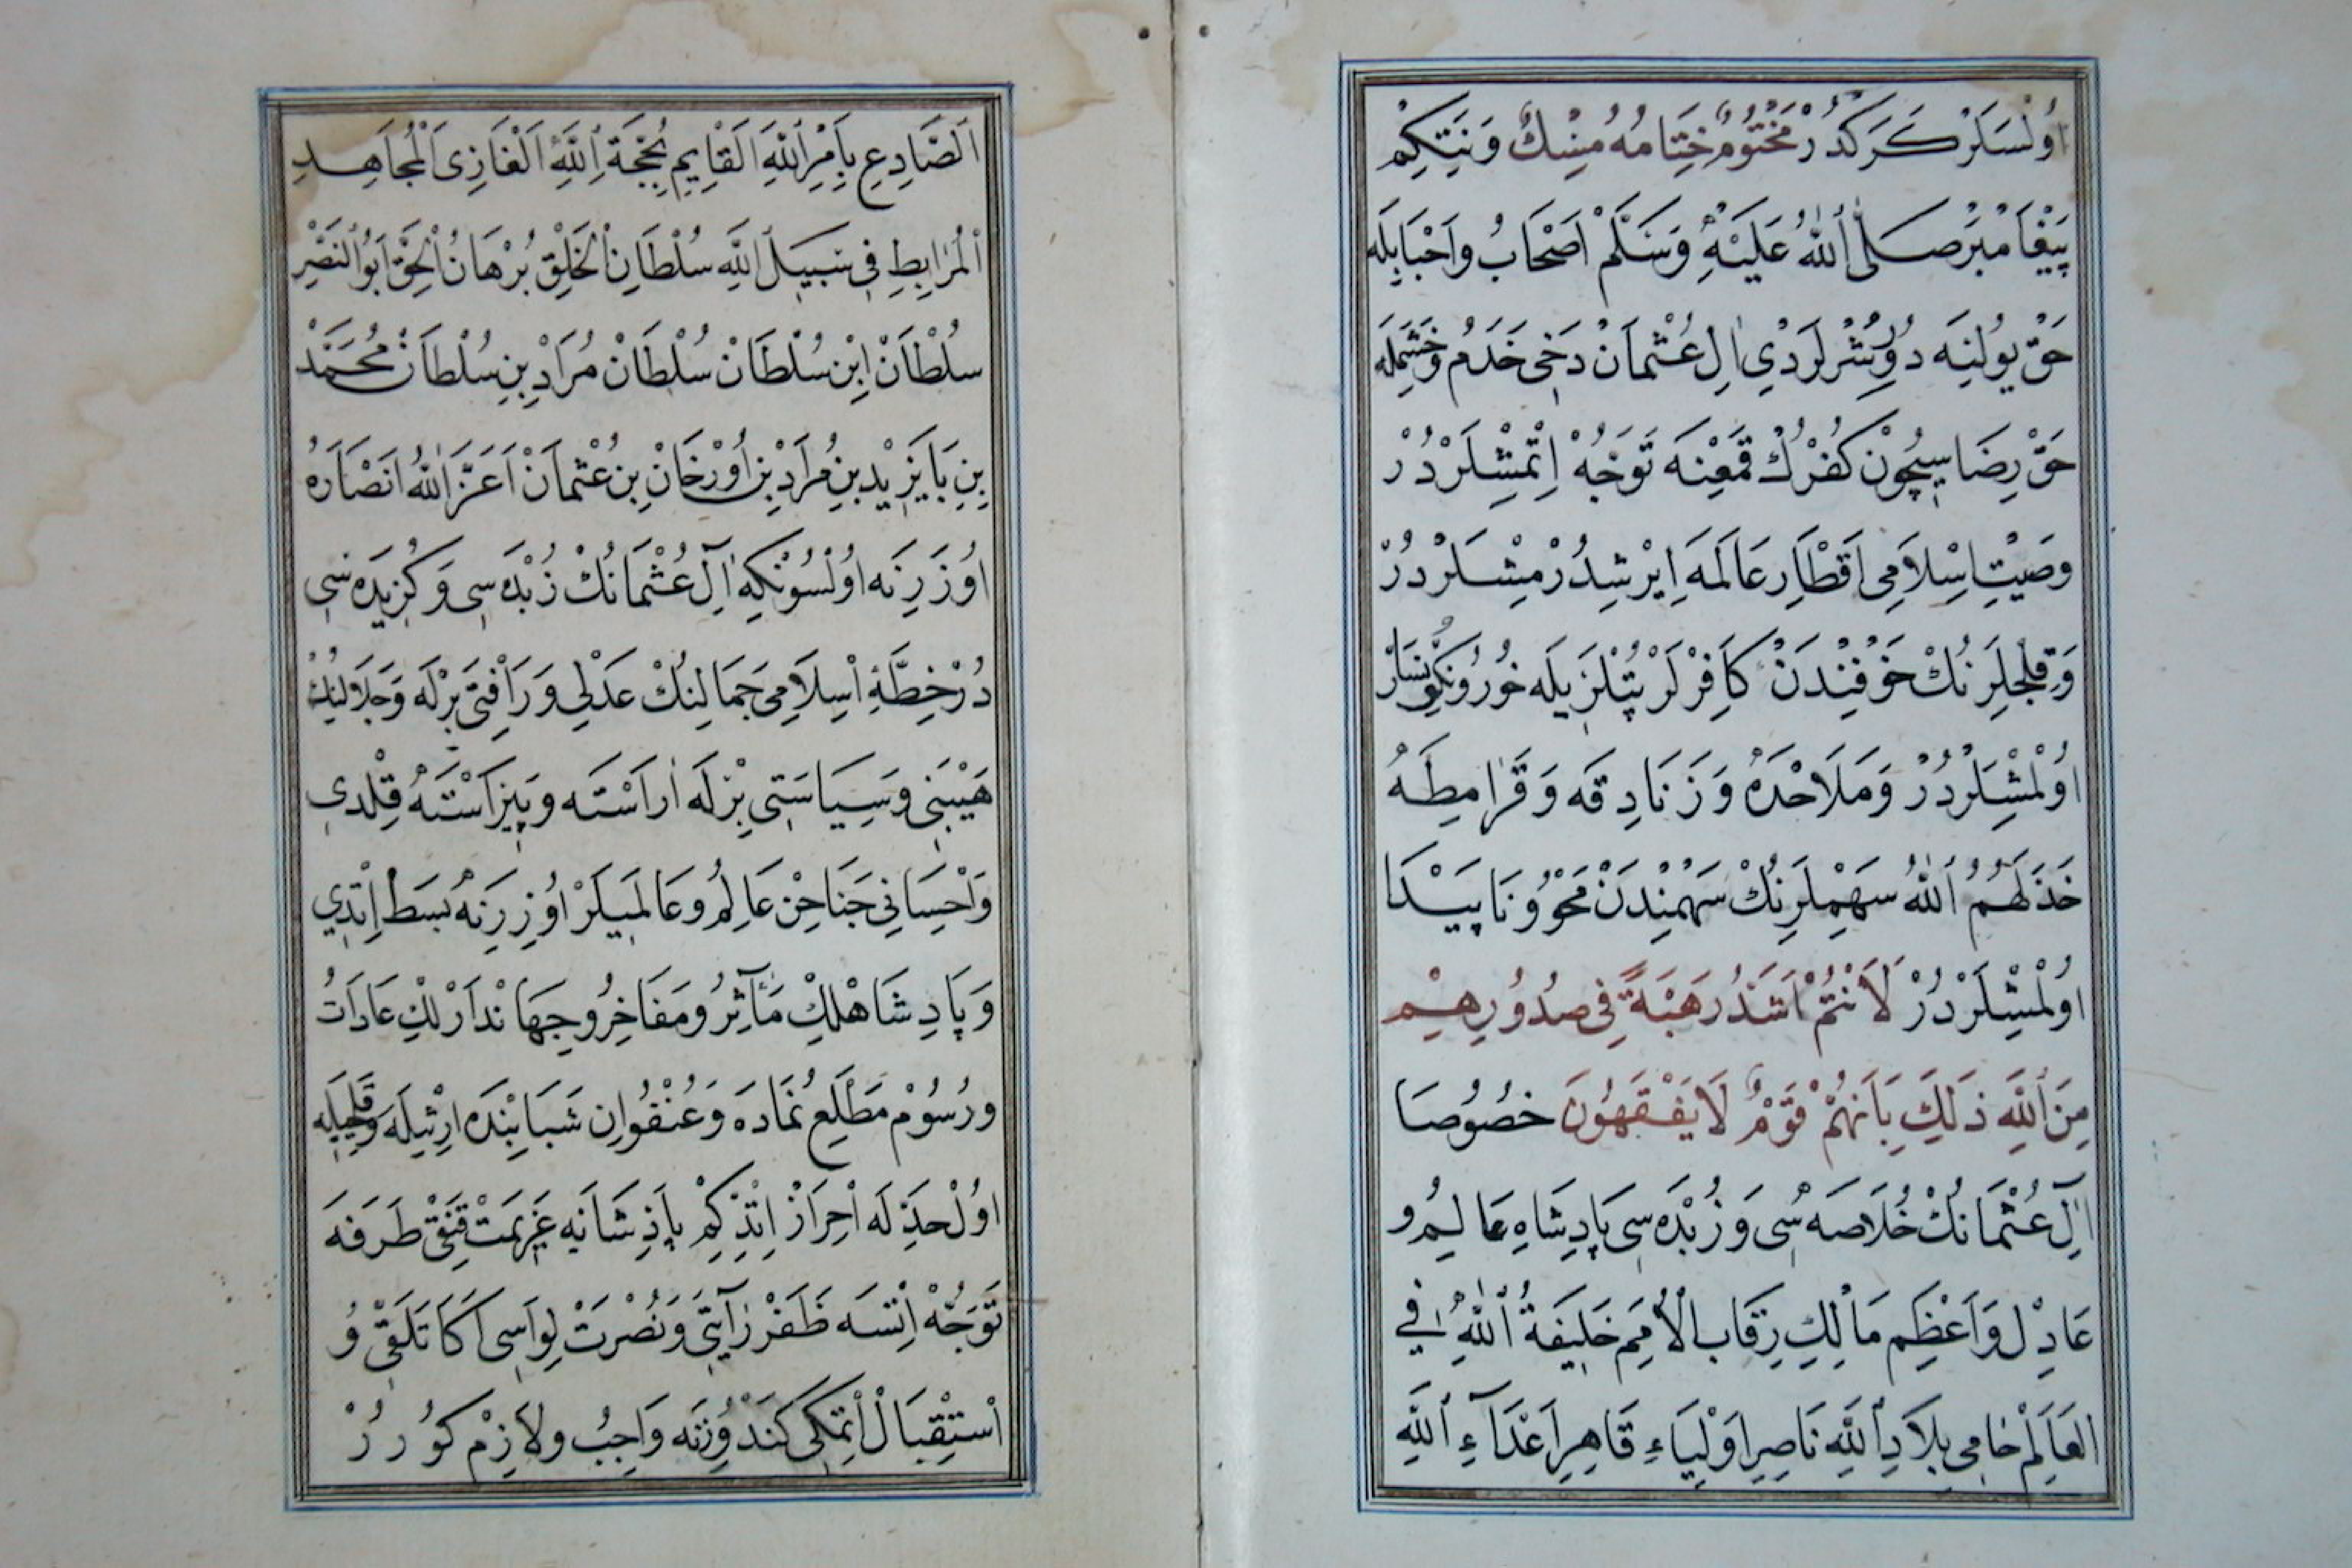 اُولْسَلَرْ كَرَكْدُرْ مَخْتُومٌ خِتَامُهُ مِسْكٌ وَنِتَكِمْ
پَيْغَامْبَرْ صَلَّى ٱللّٰهُ عَلَيْهِ وَسَلَّمْ اَصْحَابُ وَاَحْبَابِلَه
حَقْ يُولِنَه دُورِشُرْلَرْدِي اٰلِ عُثْمَانْ دَخِي خَدَمُ وَخَشَمِلَه
حَقْ رِضَاسِيچُونْ كُفْرُكْ قَمْعِنَه تَوَجُّهْ اِتْمِشْلَرْدُرْ
وَصِيتِ اِسْلَامِي اَقْطَارِ عَالَمَه اِيرْشِدُرْمِشْلَرْدُرْ
وَقِلِجْلَرِنُكْ خَوْفِنْدَنْ كَافِرْلَرْ پُتْلَرِيلَه خُورُ وَنِكُونْسَارْ
اُولْمِشْلَرْدُرْ وَمَلَاحِدَهْ وَزَنَادِقَه وَقَرَامِطَهْ
خَذَلَهُمُ ٱللّٰهُ سَهْمِلَرِنُكْ سَهْمِنْدَنْ مَحْوُ وَنَاپَيْدَا
اُولْمِشْلَرْدُرْ لَأَنْتُمْ اَشَدُّ رَهْبَةً فِي صُدُورِهِمْ
مِنَ ٱللّٰهِ ذٰلِكَ بِاَنَّهُمْ قَوْمٌ لَا يَفْقَهُونَ خُصُوصَا
اٰلِ عُثْمَانُكْ خُلَاصَه سِي وَزُبْدَه سِي پَادِشَاهِ عَالِمُ و
عَادِلْ وَاَعْظَمِ مَالِكِ رِقَابِ الْاُمَمِ خَلِيفَةُ ٱللّٰهِ فِي
العَالَمْ حَامِي بِلَادِ ٱللّٰهِ نَاصِرِ اَوْلِيَاءِ قَاهِرِ اَعْدَآءِ ٱللّٰهِ
اَلصَّادِعِ بِاَمْرِ ٱللّٰهِ اَلْقَايِمِ بِحُجَّةِ ٱللّٰهِ اَلْغَازِي اَلْمُجَاهِدِ
اَلْمُرَابِطِ فِي سَبِيلِ ٱللّٰهِ سُلْطَانِ الْخَلْقِ بُرْهَانُ الْحَقِّ اَبُو النَّصْرِ
سُلْطَانْ اِبْنِ سُلْطَانْ سُلْطَانْ مُرَادْ بِنِ سُلْطَانْ مُحَمَّدْ
بِنِ بَايَزِيدْ بِنِ مُرَادْ بِنِ اُورْخَانْ بِنِ عُثْمَانْ اَعَزَّ ٱللّٰهُ اَنْصَارَهُ
اُوزَرِنَه اُولْسُونْكِه اٰلِ عُثْمَانُكْ زُبْدَه سِي وَكُزِيدَه سِي
دُرْ خِطَّهِٔ اِسْلَامِي جَمَالِنُكْ عَدْلِي وَرَاْفَتِي بِرْلَه وَجَلَالِنُكْ
هَيْبَتِي وَسِيَاسَتِي بِرْلَه اٰرَاسْتَه وَپِيرَاسْتَهْ قِلْدِي
وَاِحْسَانِي جَنَاحِنْ عَالِمُ وعَالَمِيلَرْ اُوزَرِنَه بَسَطْ اِتْدِي
وَپَادِشَاهْلِكْ مَآثِرُ وَمَفَاخِرُ وجِهَانْدَارْلِكْ عَادَاتُ
ورُسُومْ مَطْلَعِ نُمَادَه وَعُنْفُوانِ شَبَابِنْدَه ارْثِلَه وَقِلِجِيلَه
اُولْ حَدِّلَه اَحْرَازْ اِتْدِكِمْ پَادِشَانَه عَزِيمَتْ قَنْقِي طَرَفَه
تَوَجُّهْ اِتْسَه ظَفَرْ رَايَتِي وَنُصْرَتْ لِوَاسِي اَكَا تَلَقِّي وُ
اسْتِقْبَالْ اِتْمَكِي كَنْدُوزِنَه وَاجِبُ ولَازِمْ كُورُرْ